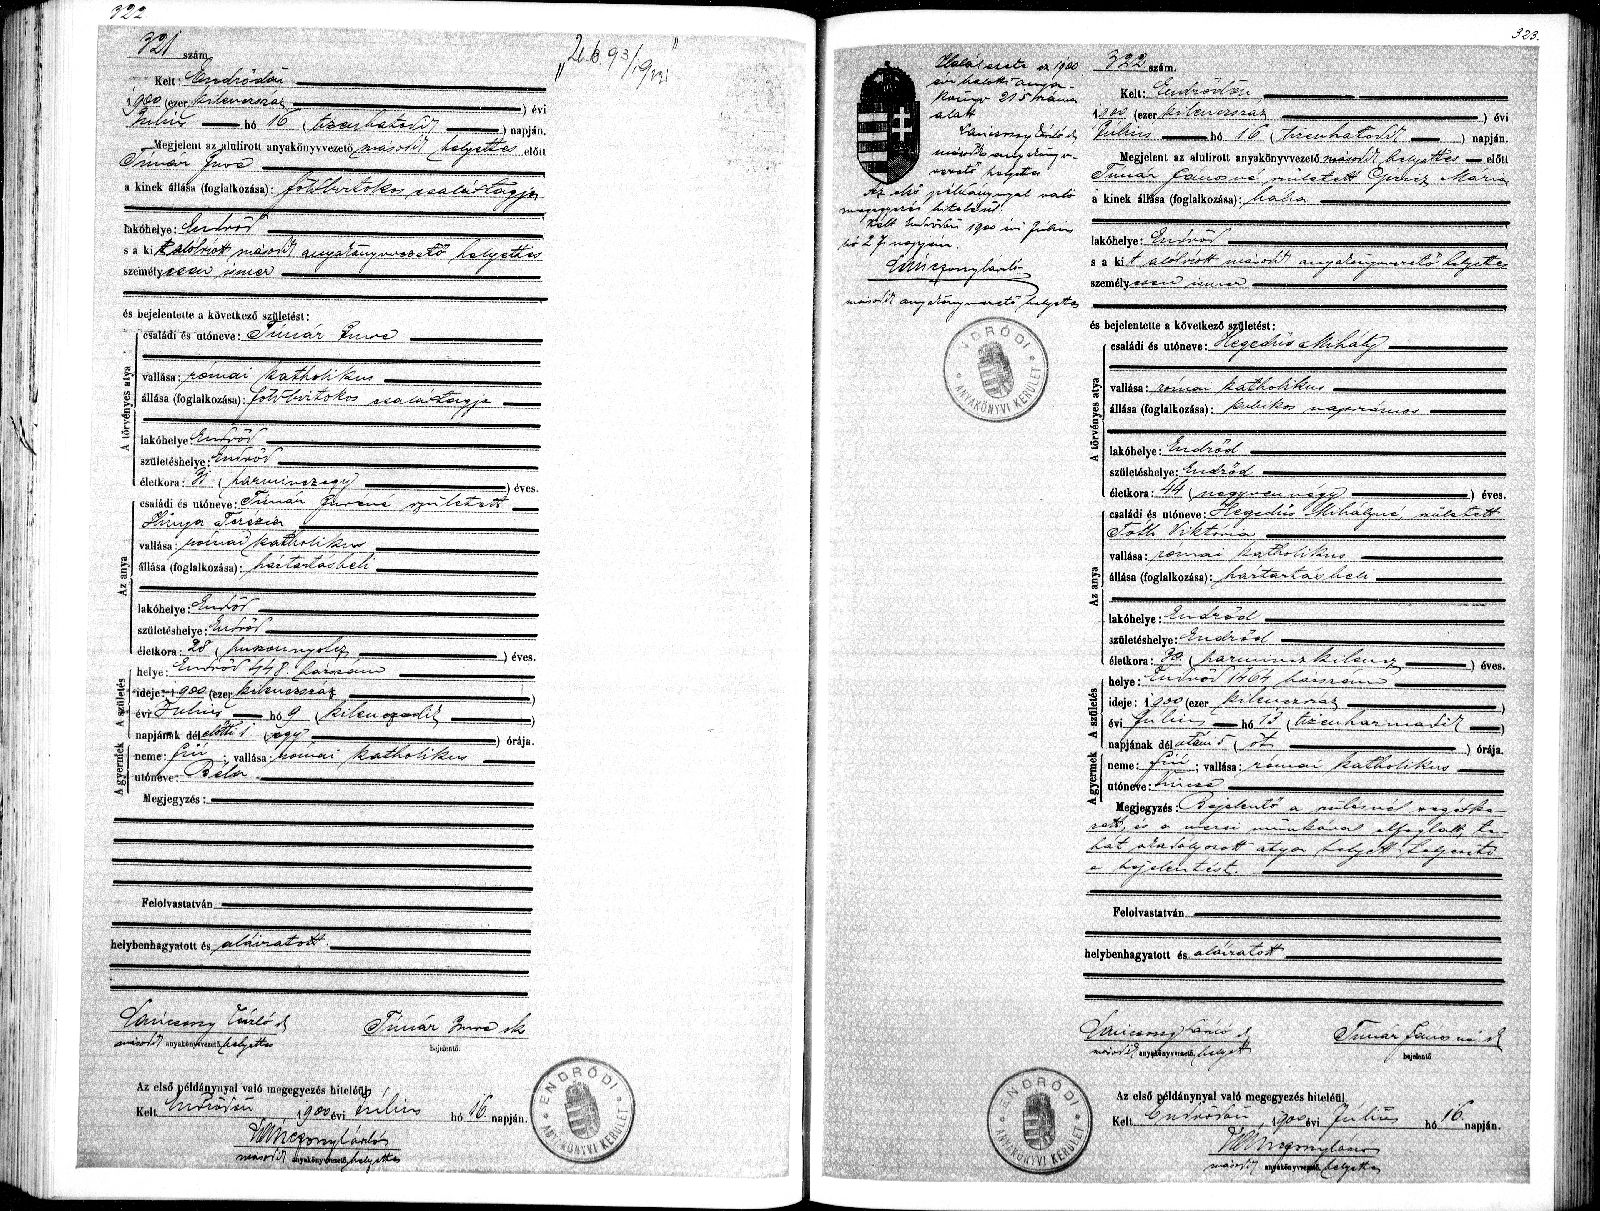 322
321 szám.
Kelt: Endrődön
1900 (ezer kilenczszáz) évi
Július hó 16 (tizenhatodik) napján.
Megjelent az alulirott anyakönyvvezető második helyettes előtt
Timár Imre
a kinek állása (foglalkozása): földbirtokos család tagja
lakóhelye: Endrőd
s a kit alólirott másodk anyakönyvvezető helyettes
személyesen ismer
és bejelentette a következő születést:
A törvényes atya
családi és utóneve: Timár Imre
vallása: római katholikus
állása (foglalkozása): földbirtokos család tagja
lakóhelye: Endrőd
születéshelye: Endrőd
életkora: 31 (harminczegy) éves.
Az anya
családi és utóneve: Timár Imréné született
Terézia
vallása: római katholikus
állása (foglalkozása): háztartásbeli
lakóhelye: Endrőd
születéshelye: Endrőd
életkora: 28 (huszonnyolcz) éves.
A születés
helye: Endrőd 448. házszám
ideje: 1900 (ezer kilenczszáz)
évi Július hó 9 (kilenczedik)
napjának délelőtti (egy) órája.
A gyermek
neme: fiú; vallása: római katholikus
utóneve: Béla
Megjegyzés:
Felolvastatván
helybenhagyatott és aláiratott
Timár Imre sk
másodk anyakönyvvezető helyettes
bejelentő.
Az első példánynyal való megegyezés hiteléül:
Kelt Endrődön 1900 évi július hó 16 napján.
másodk anyakönyvvezető helyettes
ENDRŐDI ANYAKÖNYVI KERÜLET
323.
Halálesete az 1900
évi halotti anya-
könyv 215 száma
alatt
másodk anyakönyv-
vezető helyettes
Az első példánynyal való
megegyezés hiteléül:
Kelt Endrődön 1900 évi Július
hó 27 napján.
másodk anyakönyvvezető helyettes
ENDRŐDI ANYAKÖNYVI KERÜLET
322 szám.
Kelt: Endrődön
1900 (ezer kilenczszáz) évi
Július hó 16 (tizenhatodik) napján.
Megjelent az alulirott anyakönyvvezető másodk helyettes előtt
Timár Jánosné született Mária
a kinek állása (foglalkozása): bába
lakóhelye: Endrőd
s a kit alólirott másodk anyakönyvvezető helyettes
személyesen ismer
és bejelentette a következő születést:
A törvényes atya
családi és utóneve: Hegedűs Mihály
vallása: római katholikus
állása (foglalkozása): kubikos napszámos
lakóhelye: Endrőd
születéshelye: Endrőd
életkora: 44 (negyvennégy) éves.
Az anya
családi és utóneve: Hegedűs Mihályné, született
Tóth Viktória
vallása: római katholikus
állása (foglalkozása): háztartásbeli
lakóhelye: Endrőd
születéshelye: Endrőd
életkora: 39 (harminczkilencz) éves.
A születés
helye: Endrőd 1464 házszám
ideje: 1900 (ezer kilenczszáz)
évi Július hó 13 (tizenharmadik)
napjának délutáni (öt) órája.
A gyermek
neme: fiú; vallása: római katholikus
utóneve:
Megjegyzés: Bejelentő a szülésnél
és a mezei munkával elfoglalt, te-
hát akadályozott atya helyett teljesíté
a bejelentést.
Felolvastatván
helybenhagyatott és aláiratott
Timár Jánosné sk
másodk anyakönyvvezető helyett.
bejelentő
Az első példánynyal való megegyezés hiteléül.
Kelt Endrődön 1900 évi Július hó 16 napján.
másodk anyakönyvvezető helyettes
ENDRŐDI ANYAKÖNYVI KERÜLET